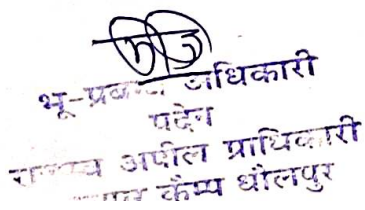 भू-प्रबन्ध अधिकारी
पदेन
राजस्व अपील प्राधिकारी
कैम्प धौलपुर